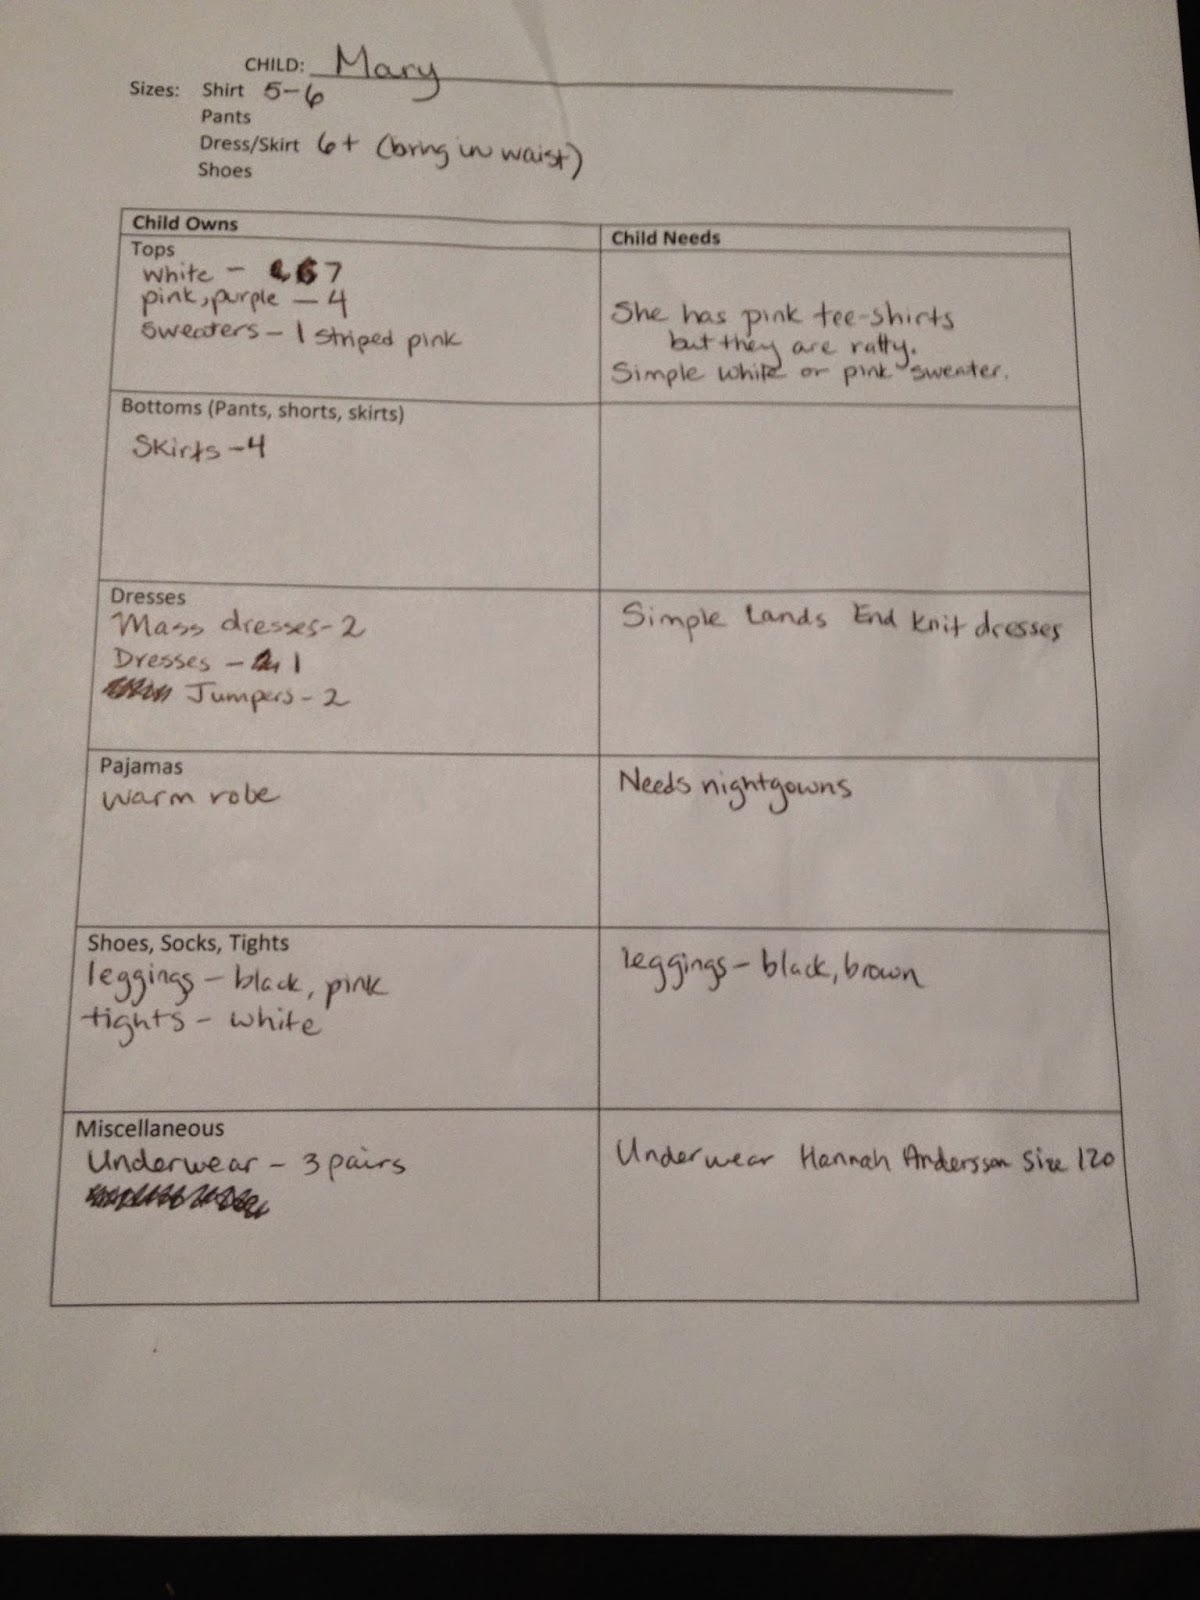 CHILD: Mary
Sizes: Shirt 5-6
Pants
Dress/Skirt 6+ (bring in waist)
Shoes
Child Owns
Child Needs
Tops
white - 7
pink, purple - 4
sweaters - 1 striped pink
She has pink tee-shirts
but they are ratty.
Simple white or pink sweater.
Bottoms (Pants, shorts, skirts)
Skirts - 4
Dresses
Mass dresses - 2
Dresses - 1
Jumpers - 2
Simple Lands End knit dresses
Pajamas
warm robe
Needs nightgowns
Shoes, Socks, Tights
leggings - black, pink
tights - white
leggings - black, brown
Miscellaneous
Underwear - 3 pairs
Underwear Hannah Andersson size 120